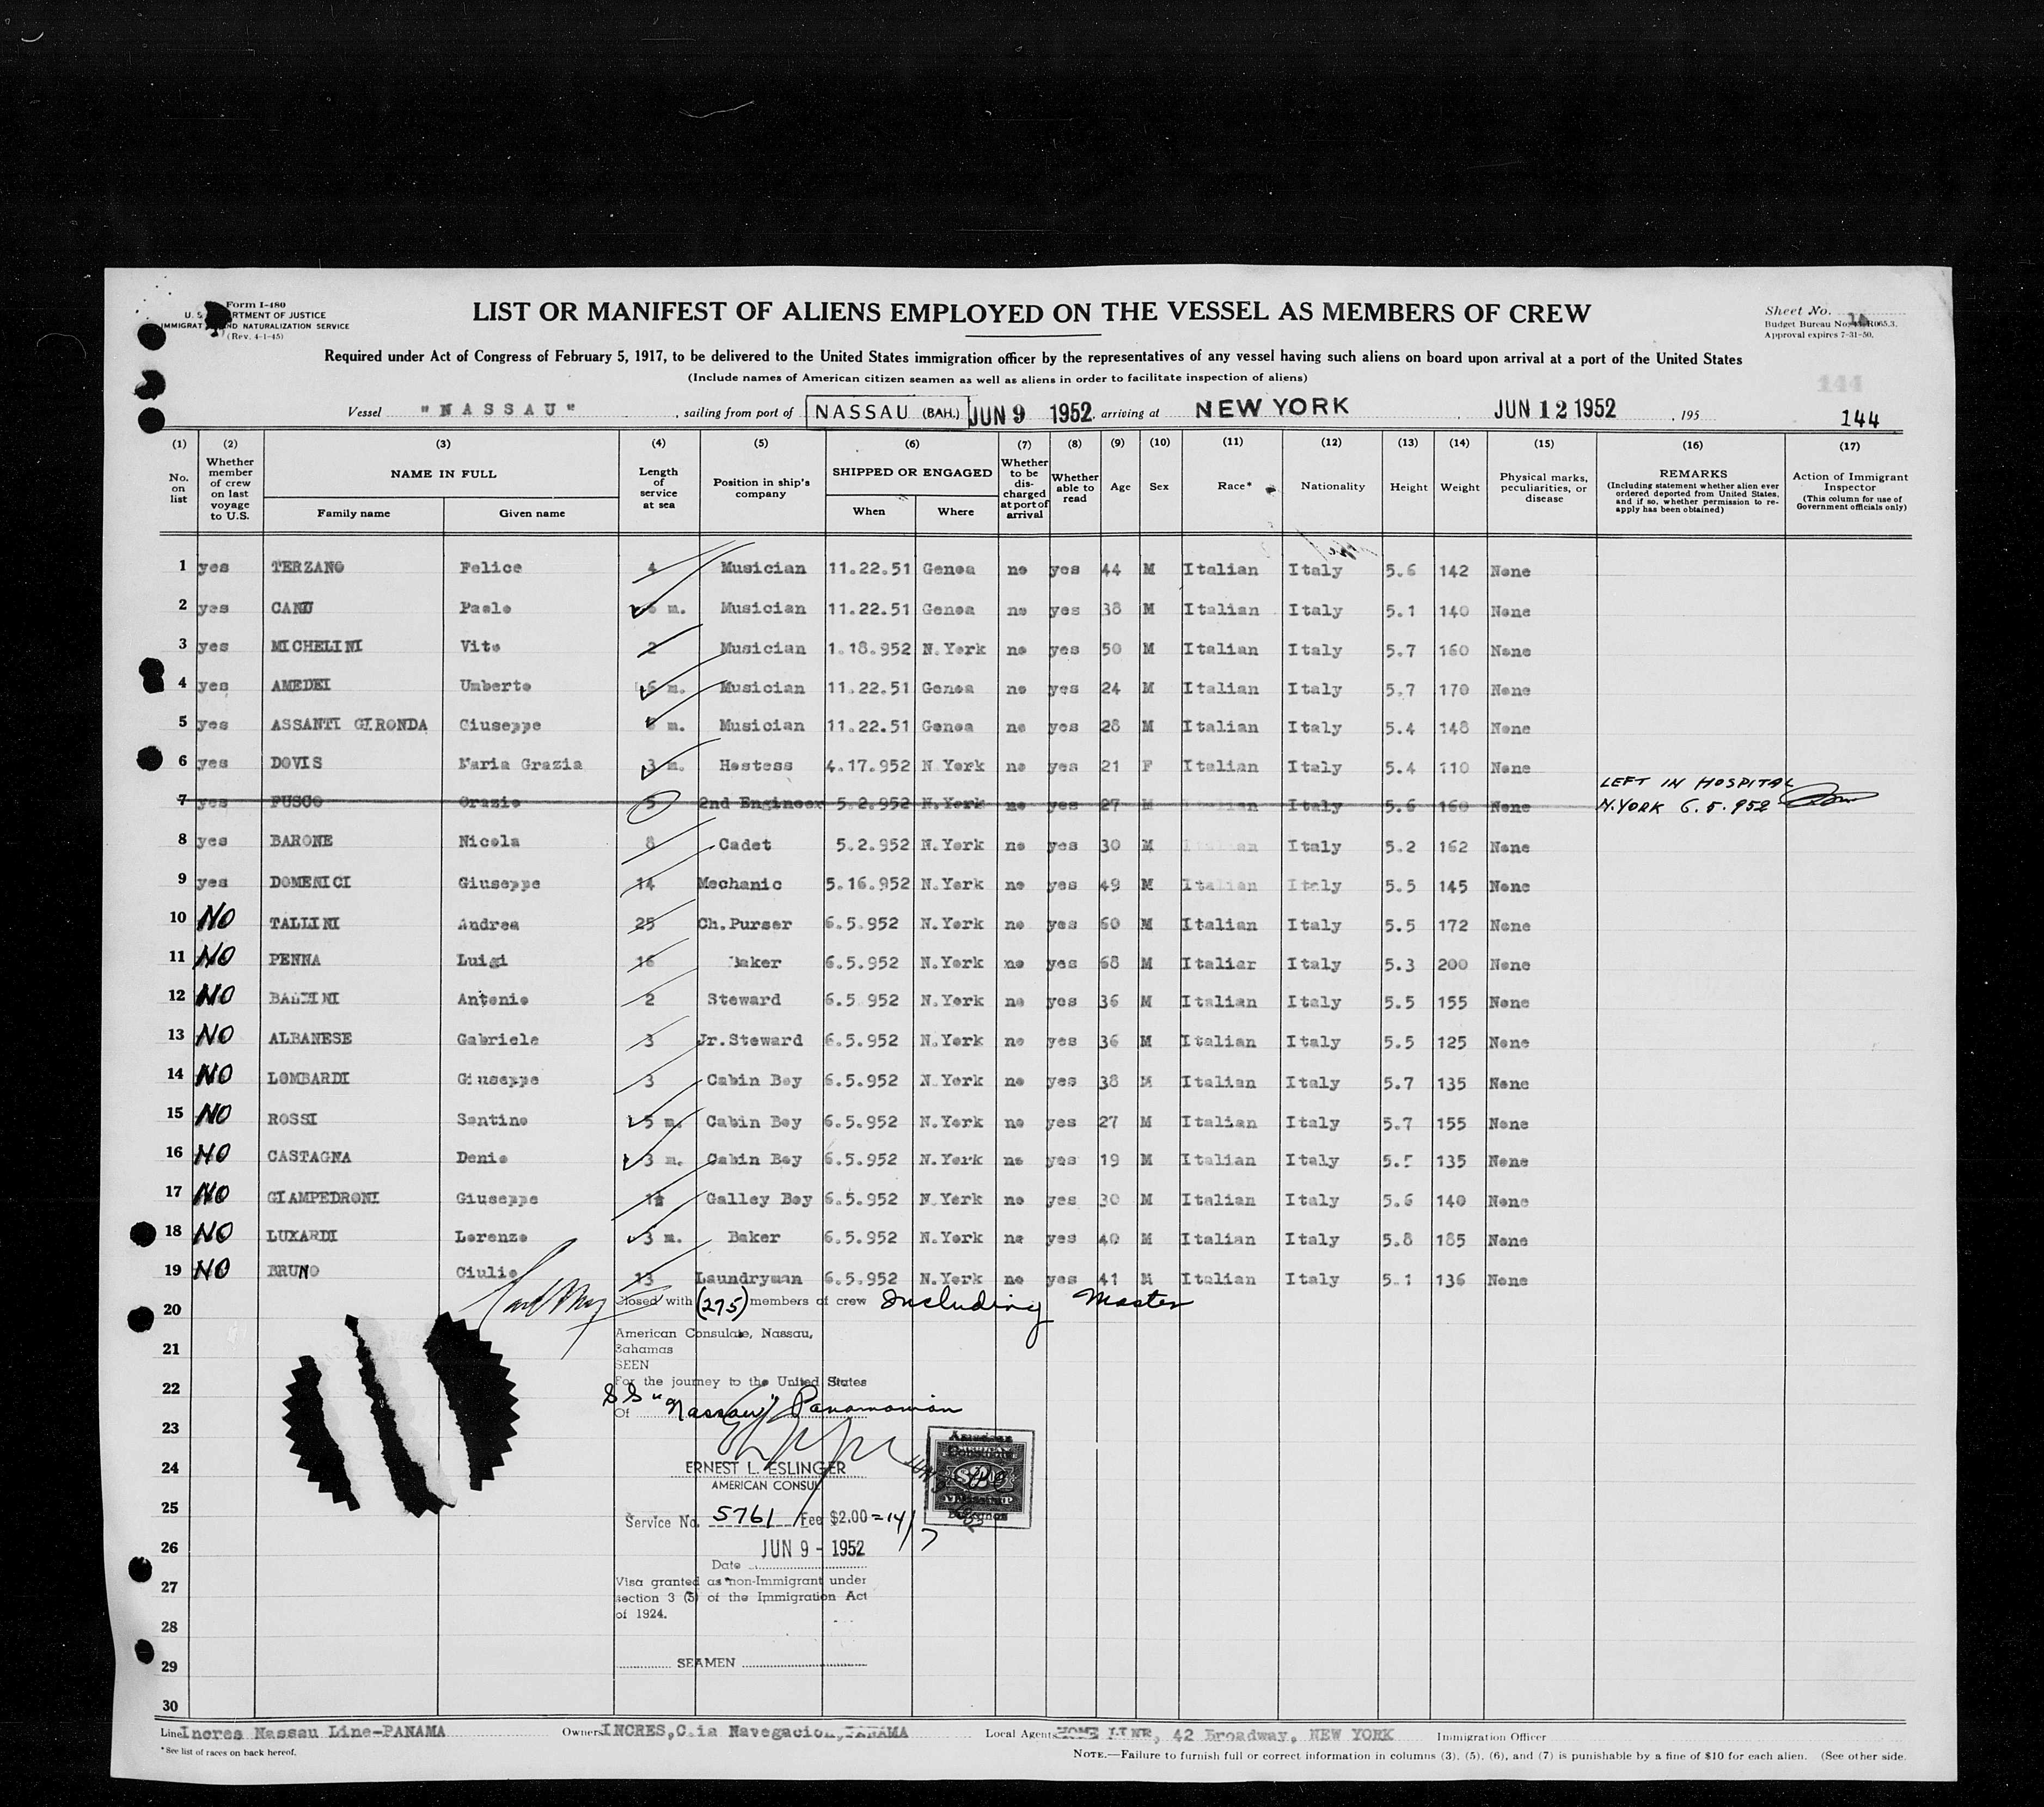 Form I-480
U. S. DEPARTMENT OF JUSTICE
IMMIGRATION AND NATURALIZATION SERVICE
(Rev. 4-1-45)
LIST OR MANIFEST OF ALIENS EMPLOYED ON THE VESSEL AS MEMBERS OF CREW
Sheet No.
Budget Bureau No. R065.3.
Approval expires 7-31-50.
Required under Act of Congress of February 5, 1917, to be delivered to the United States immigration officer by the representatives of any vessel having such aliens on board upon arrival at a port of the United States
(Include names of American citizen seamen as well as aliens in order to facilitate inspection of aliens)
144
Vessel "NASSAU", sailing from port of NASSAU (BAH.) JUN 9 1952, arriving at NEW YORK, JUN 12 1952, 195
144
(1) (2) (3) (4) (5) (6) (7) (8) (9) (10) (11) (12) (13) (14) (15) (16) (17)
No. on list
Whether member of crew on last voyage to U.S.
NAME IN FULL
Family name Given name
Length of service at sea
Position in ship's company
SHIPPED OR ENGAGED
When Where
Whether to be discharged at port of arrival
Whether able to read
Age
Sex
Race*
Nationality
Height
Weight
Physical marks, peculiarities, or disease
REMARKS
(Including statement whether alien ever ordered deported from United States, and if so, whether permission to re-apply has been obtained)
Action of Immigrant Inspector
(This column for use of Government officials only)
1 yes TERZANO Felice 4 Musician 11.22.51 Genoa no yes 44 M Italian Italy 5.6 142 None
2 yes CANU Paolo m. Musician 11.22.51 Genoa no yes 38 M Italian Italy 5.1 140 None
3 yes MICHELINI Vito 2 Musician 1.18.952 N.York no yes 50 M Italian Italy 5.7 160 None
4 yes AMEDEI Umberto 6 m. Musician 11.22.51 Genoa no yes 24 M Italian Italy 5.7 170 None
5 yes ASSANTI GIRONDA Giuseppe m. Musician 11.22.51 Genoa no yes 28 M Italian Italy 5.4 148 None
6 yes DOVIS Maria Grazia 3 m. Hostess 4.17.952 N York no yes 21 F Italian Italy 5.4 110 None
7 yes FUSCO Orazio 5 2nd Engineer 5.2.952 N.York no yes 27 M Italian Italy 5.6 160 None LEFT IN HOSPITAL
N.YORK 6.5.952
8 yes BARONE Nicola 8 Cadet 5.2.952 N.York no yes 30 M Italian Italy 5.2 162 None
9 yes DOMENICI Giuseppe 14 Mechanic 5.16.952 N.York no yes 49 M Italian Italy 5.5 145 None
10 NO TALLINI Andrea 25 Ch.Purser 6.5.952 N.York no yes 60 M Italian Italy 5.5 172 None
11 NO PENNA Luigi 16 Baker 6.5.952 N.York no yes 68 M Italian Italy 5.3 200 None
12 NO Antonio 2 Steward 6.5 952 N.York no yes 36 M Italian Italy 5.5 155 None
13 NO ALBANESE Gabriele 3 Jr.Steward 6.5.952 N.York no yes 36 M Italian Italy 5.5 125 None
14 NO LOMBARDI Giuseppe 3 Cabin Boy 6.5.952 N.York no yes 38 M Italian Italy 5.7 135 None
15 NO ROSSI Santino 5 m. Cabin Boy 6.5.952 N.York no yes 27 M Italian Italy 5.7 155 None
16 NO CASTAGNA Denio 3 m. Cabin Boy 6.5.952 N.York no yes 19 M Italian Italy 5.5 135 None
17 NO GIAMPEDRONI Giuseppe Galley Boy 6.5.952 N.York no yes 30 M Italian Italy 5.6 140 None
18 NO LUXARDI Lorenzo 3 m. Baker 6.5.952 N.York no yes 40 M Italian Italy 5.8 185 None
19 NO BRUNO Giulio 13 Laundryman 6.5.952 N.York no yes 41 M Italian Italy 5.1 136 None
20 Closed with (275) members of crew Including Master
21 American Consulate, Nassau,
Bahamas
SEEN
22 For the journey to the United States
Of SS "Nassau" Panamanian
23
24 ERNEST L. ESLINGER
AMERICAN CONSUL
25 Service No. 5761 Fee $2.00 = 14/7
26 JUN 9 - 1952
Date
27 Visa granted as non-Immigrant under
section 3 (5) of the Immigration Act
of 1924.
28
29 SEAMEN
30
Line Incres Nassau Line-PANAMA Owners INCRES,C.ia Navegacion,PANAMA Local Agents HOME LINE, 42 Broadway, NEW YORK Immigration Officer
*See list of races on back hereof.
NOTE.—Failure to furnish full or correct information in columns (3), (5), (6), and (7) is punishable by a fine of $10 for each alien. (See other side.